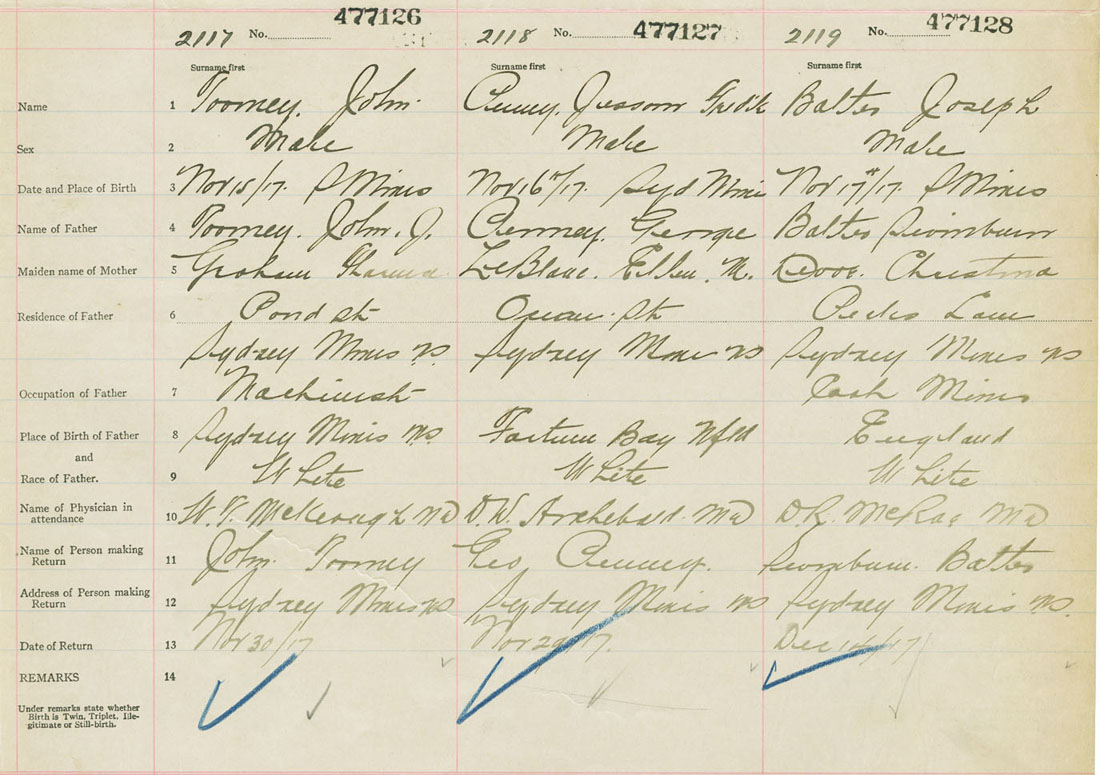 477126 477127 477128
2117 No. 2118 No. 2119 No.
Surname first Surname first Surname first
Name 1 Toomey. John. Jessom Batter Joseph
Sex 2 Male Male Male
Date and Place of Birth 3 Nov 15/17. S Mines Nov 16th/17. Syd Mines Nov 17th/17. S Mines
Name of Father 4 Toomey. John. J. George Batter
Maiden name of Mother 5 Graham LeBlanc. Ellen. M. Christina
Residence of Father 6 Pond St Ocean. St Lane
Sydney Mines NS Sydney Mines NS Sydney Mines NS
Occupation of Father 7 Machinist
Place of Birth of Father 8 Sydney Mines NS Fortune Bay Nfld England
and
Race of Father. 9 White White White
Name of Physician in
attendance 10 McKeough MD D.W. Archibald. MD McRae MD
Name of Person making
Return 11 John. Toomey Geo Batter
Address of Person making
Return 12 Sydney Mines NS Sydney Mines NS Sydney Mines NS.
Date of Return 13 Nov 30/17 Nov 29/17. Dec 14/17
REMARKS 14
Under remarks state whether
Birth is Twin, Triplet, Ille-
gitimate or Still-birth.